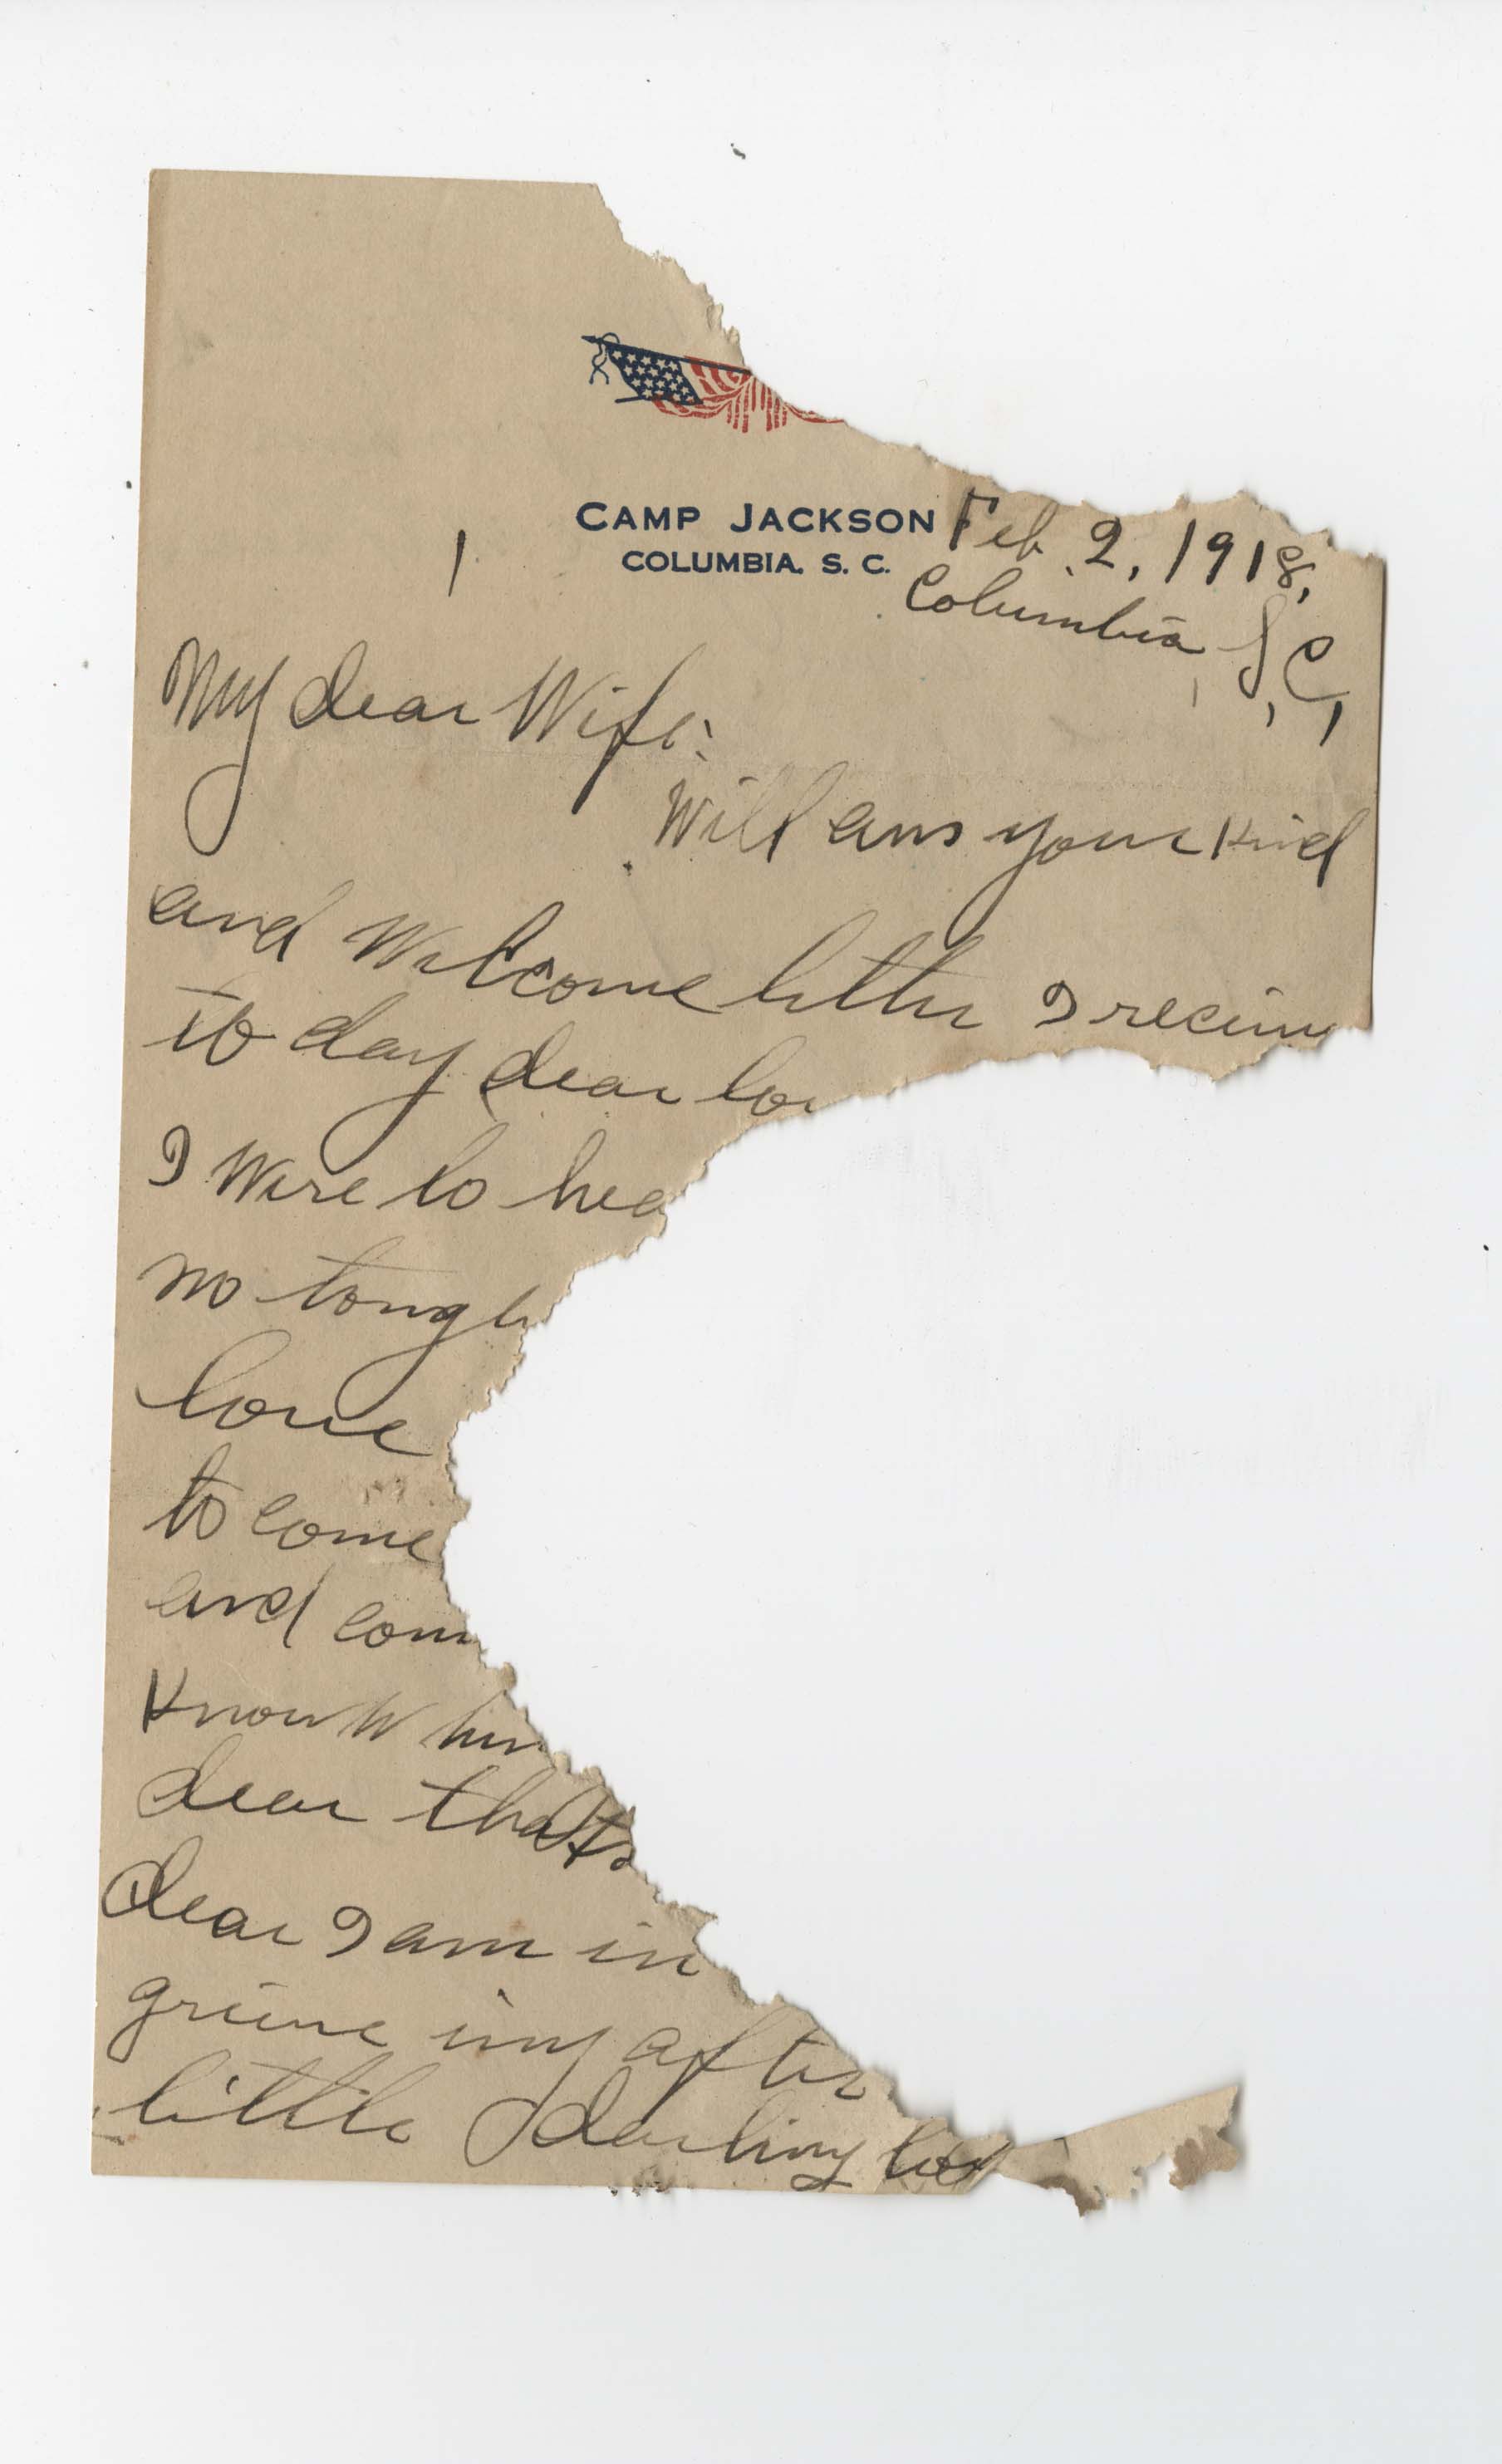 CAMP JACKSON
COLUMBIA. S. C.
Feb. 2, 1918,
1
Columbia, S, C,
My dear Wife:
Will ans your kind
and Welcome letter I recieve
to day dear
I Were to hea
no
love
to come
and com
Know
dear thats
dear I am in
grieve ing after
little darling